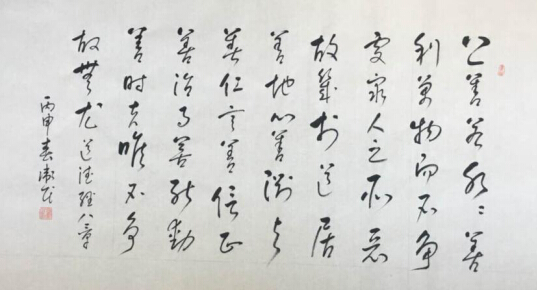 上善若水水善
利万物而不争
处众人之所恶
故几于道居
善地心善渊与
善仁言善信正
善治事善能动
善时夫唯不争
故无尤道德经八章
丙申春